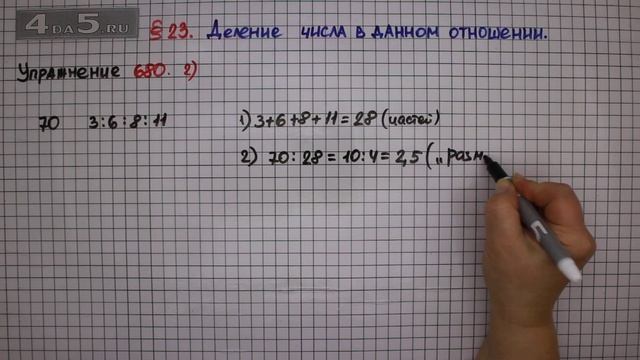 4DA5.RU
§ 23. Деление числа в данном отношении.
Упражнение 680. 2)
70 3:6:8:11
1) 3+6+8+11=28 (частей)
2) 70:28=10:4=2,5 („разм